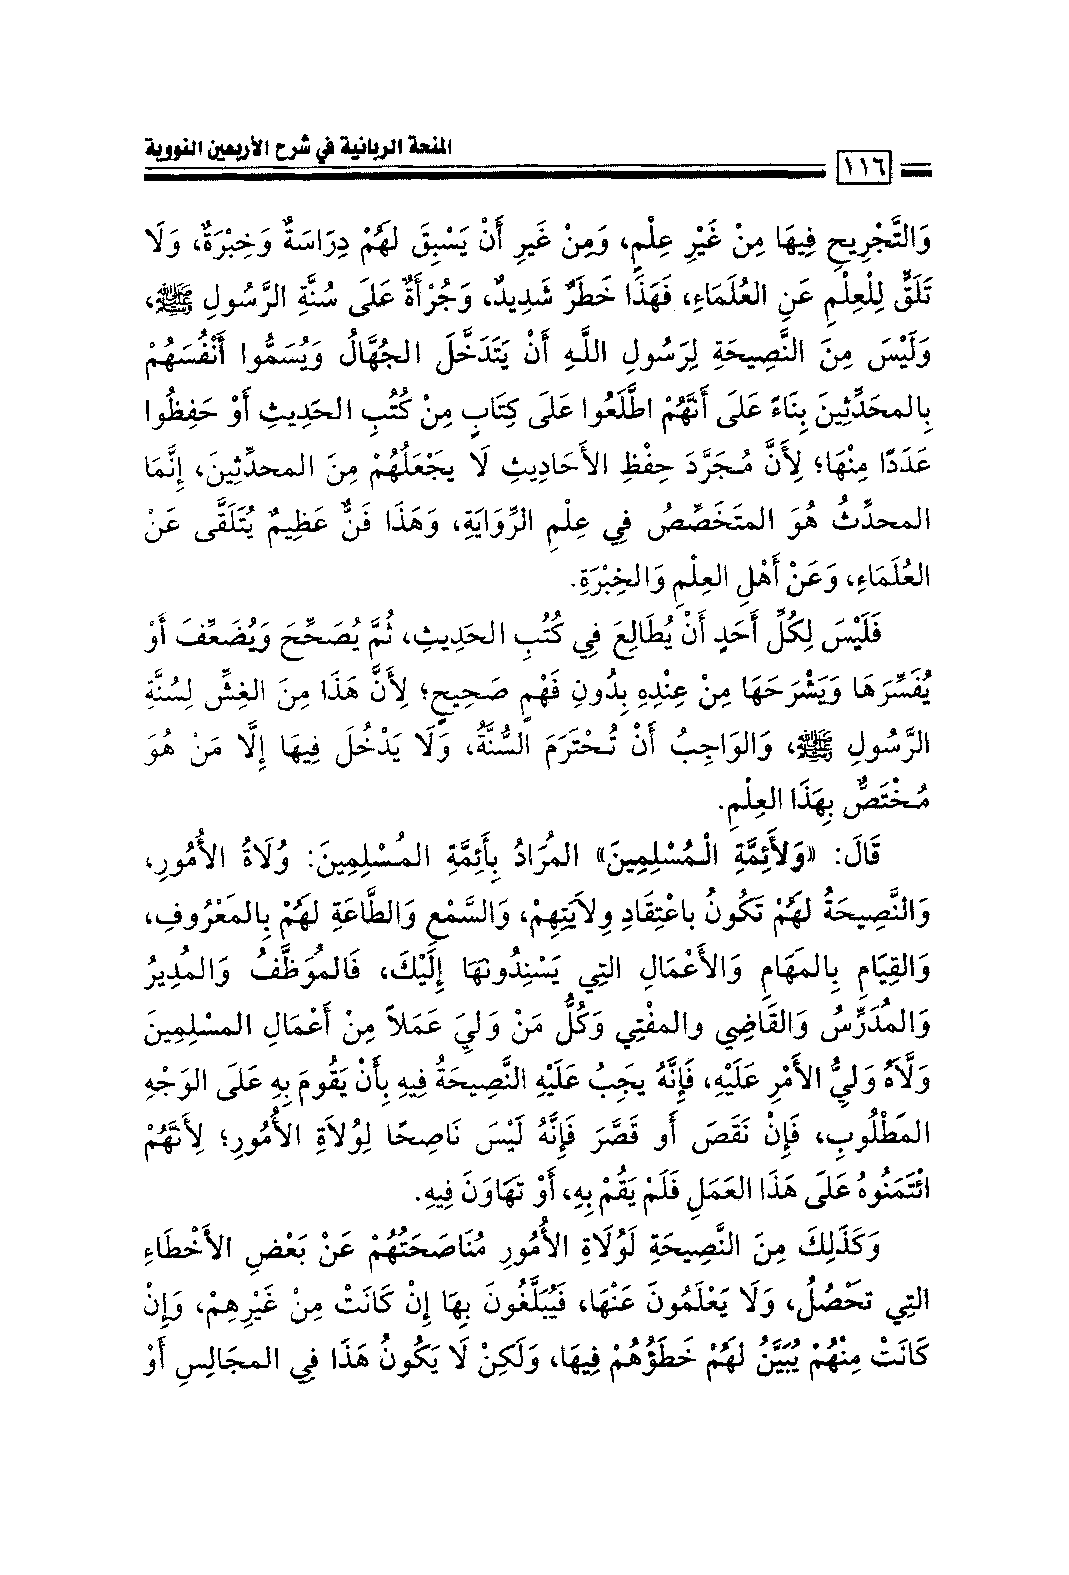 المنحة الربانية في شرح الأربعين النووية
١١٦
وَالتَّجْرِيحِ فِيهَا مِنْ غَيْرِ عِلْمٍ، وَمِنْ غَيرِ أَنْ يَسْبِقَ لَهُمْ دِرَاسَةٌ وَخِبْرَةٌ، وَلَا
تَلَقٍّ لِلْعِلْمِ عَنِ العُلَمَاءِ، فَهَذَا خَطَرٌ شَدِيدٌ، وَجُرْأَةٌ عَلَى سُنَّةِ الرَّسُولِ ﷺ،
وَلَيْسَ مِنَ النَّصِيحَةِ لِرَسُولِ اللَّهِ أَنْ يَتَدَخَّلَ الجُهَّالُ وَيُسَمُّوا أَنْفُسَهُمْ
بِالمحَدِّثِينَ بِنَاءً عَلَى أَنَّهُمْ اطَّلَعُوا عَلَى كِتَابٍ مِنْ كُتُبِ الحَدِيثِ أَوْ حَفِظُوا
عَدَدًا مِنْهَا؛ لِأَنَّ مُجَرَّدَ حِفْظِ الأَحَادِيثِ لَا يَجْعَلُهُمْ مِنَ المحدِّثِينَ، إِنَّمَا
المحدِّثُ هُوَ المتَخَصِّصُ فِي عِلْمِ الرِّوَايَةِ، وَهَذَا فَنٌّ عَظِيمٌ يُتَلَقَّى عَنْ
العُلَمَاءِ، وَعَنْ أَهْلِ العِلْمِ وَالخِبْرَةِ.
فَلَيْسَ لِكُلِّ أَحَدٍ أَنْ يُطَالِعَ فِي كُتُبِ الحَدِيثِ، ثُمَّ يُصَحِّحَ وَيُضَعِّفَ أَوْ
يُفَسِّرَهَا وَيَشْرَحَهَا مِنْ عِنْدِهِ بِدُونِ فَهْمٍ صَحِيحٍ؛ لِأَنَّ هَذَا مِنَ الغِشِّ لِسُنَّةِ
الرَّسُولِ ﷺ، وَالوَاجِبُ أَنْ تُحْتَرَمَ السُّنَّةُ، وَلَا يَدْخُلَ فِيهَا إِلَّا مَنْ هُوَ
مُخْتَصٌّ بِهَذَا العِلْمِ.
قَالَ: «وَلأَئِمَّةِ الْمُسْلِمِينَ» المُرَادُ بِأَئِمَّةِ المُسْلِمِينَ: وُلَاةُ الأُمُورِ،
وَالنَّصِيحَةُ لَهُمْ تَكُونُ باعْتِقَادِ وِلاَيَتِهِمْ، وَالسَّمْعِ وَالطَّاعَةِ لَهُمْ بِالمَعْرُوفِ،
وَالقِيَامِ بِالمَهَامِ وَالأَعْمَالِ التِي يَسْنِدُونَهَا إِلَيْكَ، فَالمُوَظَّفُ وَالمُدِيرُ
وَالمُدَرِّسُ وَالقَاضِي والمفْتِي وَكُلُّ مَنْ وَلِيَ عَمَلاً مِنْ أَعْمَالِ المسْلِمِينَ
وَلَّاهُ وَلِيُّ الأَمْرِ عَلَيْهِ، فَإِنَّهُ يَجِبُ عَلَيْهِ النَّصِيحَةُ فِيهِ بِأَنْ يَقُومَ بِهِ عَلَى الوَجْهِ
المَطْلُوبِ، فَإِنْ نَقَصَ أَو قَصَّرَ فَإِنَّهُ لَيْسَ نَاصِحًا لِوُلاَةِ الأُمُورِ؛ لِأَنَّهُمْ
ائْتَمَنُوهُ عَلَى هَذَا العَمَلِ فَلَمْ يَقُمْ بِهِ، أَوْ تَهَاوَنَ فِيهِ.
وَكَذَلِكَ مِنَ النَّصِيحَةِ لَوُلَاةِ الأُمُورِ مُنَاصَحَتُهُمْ عَنْ بَعْضِ الأَخْطَاءِ
التِي تَحْصُلُ، وَلَا يَعْلَمُونَ عَنْهَا، فَيُبَلَّغُونَ بِهَا إِنْ كَانَتْ مِنْ غَيْرِهِمْ، وَإِنْ
كَانَتْ مِنْهُمْ يُبَيَّنُ لَهُمْ خَطَؤُهُمْ فِيهَا، وَلَكِنْ لَا يَكُونُ هَذَا فِي المجَالِسِ أَوْ